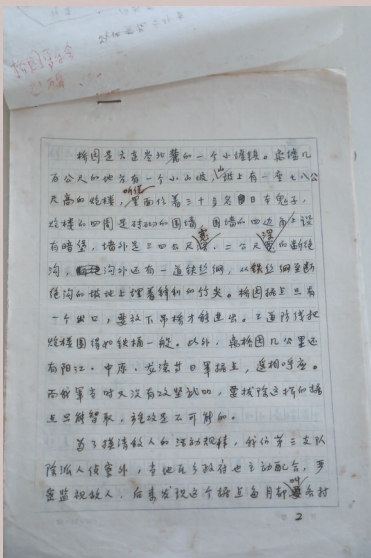 榆园是六连岭北麓的一个小墟镇。离墟几
百公尺的地方有一个小山坡,坡上有一座七八公
尺高的炮楼,听说里面住着三十多名日本鬼子,
炮楼的四周是 的围墙,围墙的四边角上设
有暗堡,墙外是三四公尺宽、二公尺深的断绝
沟,沟外还有一道铁丝网,从铁丝网至断
绝沟的坡地上埋着锋利的竹尖。榆园据点只有
一个出口,要放下吊桥才能进出。三道防线把
炮楼围得如铁桶一般。此外,离榆园几公里还
有阳江、中原、龙滚等日军据点,遥相呼应。
而我军当时又没有攻坚武功,要拔除这样的据
点只能智取,强攻是不可能的。
为了摸清敌人的活动规律,我们第三支队
除派人侦查外,当地区乡政府也主动配合,严
密监视敌人。后来发现这个据点每月都要叫各村
2